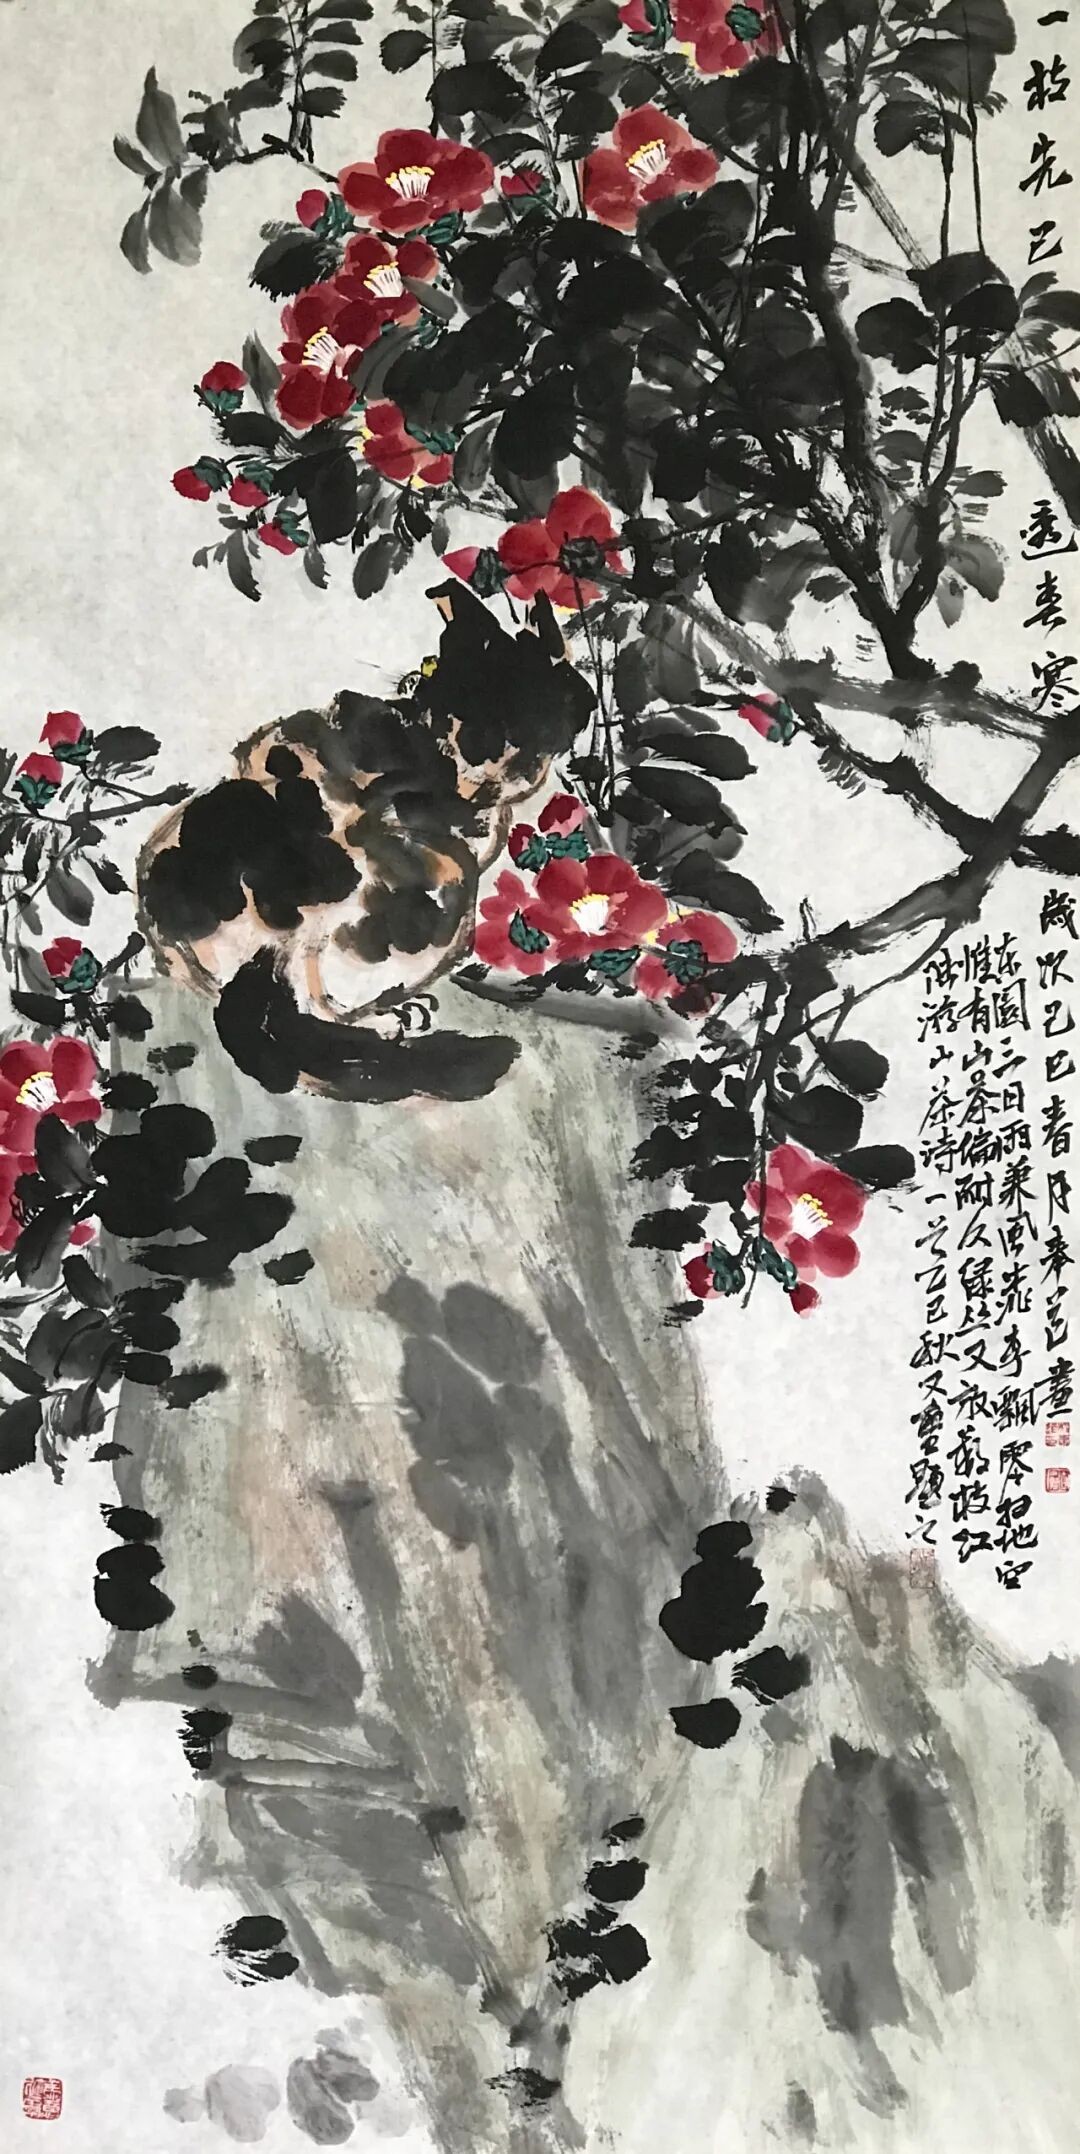 一枝先已透春寒
歲次己巳春月奉邑畫
东園三日雨兼風桃李飄零扫地空
惟有山茶偏耐久绿丛又放数枝红
陆游山茶诗一首己巳秋又題之